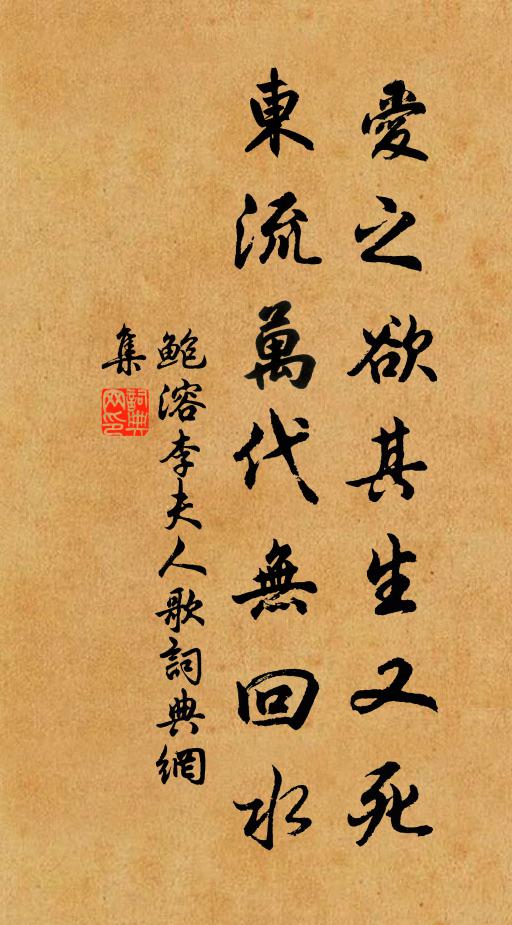 愛之欲其生又死
東流萬代無回水
鮑溶李夫人歌詞典網
集
詞典網印